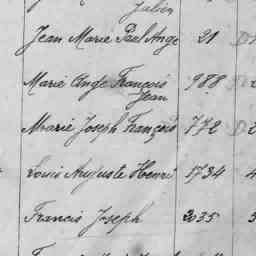 Julien
Jean Marie Paul Ange 21
Marie Ange François 988
Jean
Marie Joseph François 772
Louis Auguste Henri 1734
Francis Joseph 2035